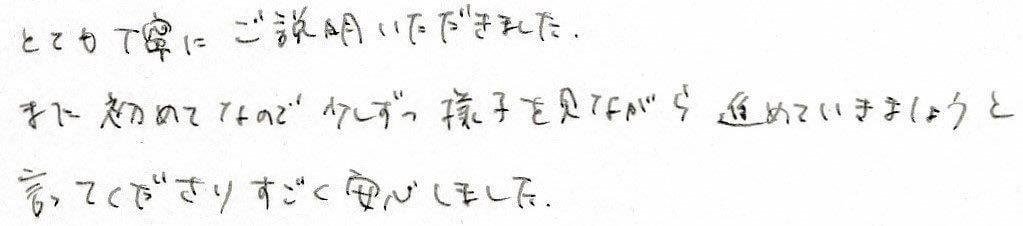 とても丁寧にご説明いただきました.
また初めてなので少しずつ様子を見ながら進めていきましょうと
言ってくださりすごく安心しました.